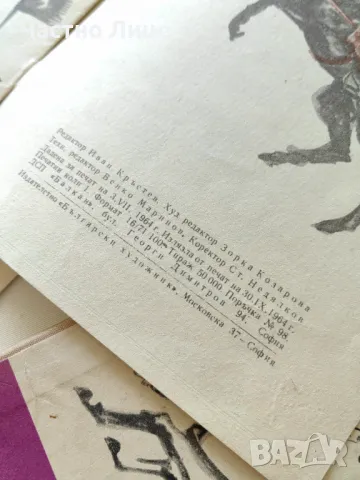 Частно Ли
Редактор Иван Кръстев, Худ. редактор Зорка Козарова
Техн. редактор Венко Маринов, Коректор Ст. Недялков
Дадена за печат на 3.VII. 1964 г. Излязла от печат на 30.IX. 1964 г.
Печатни коли 1. Формат 16/71/100. Тираж 50 000. Поръчка № 98.
ДСП «Балкан», бул. Георги Димитров 94. София
Издателство «Български художник», Московска 37 — София
BAZAR
bg